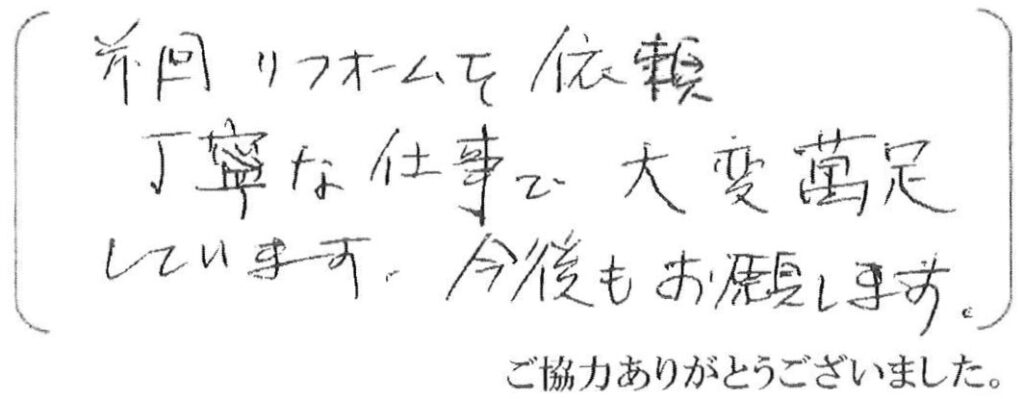 前回リフォームを依頼
丁寧な仕事で大変萬足
しています。今後もお願します。
ご協力ありがとうございました。